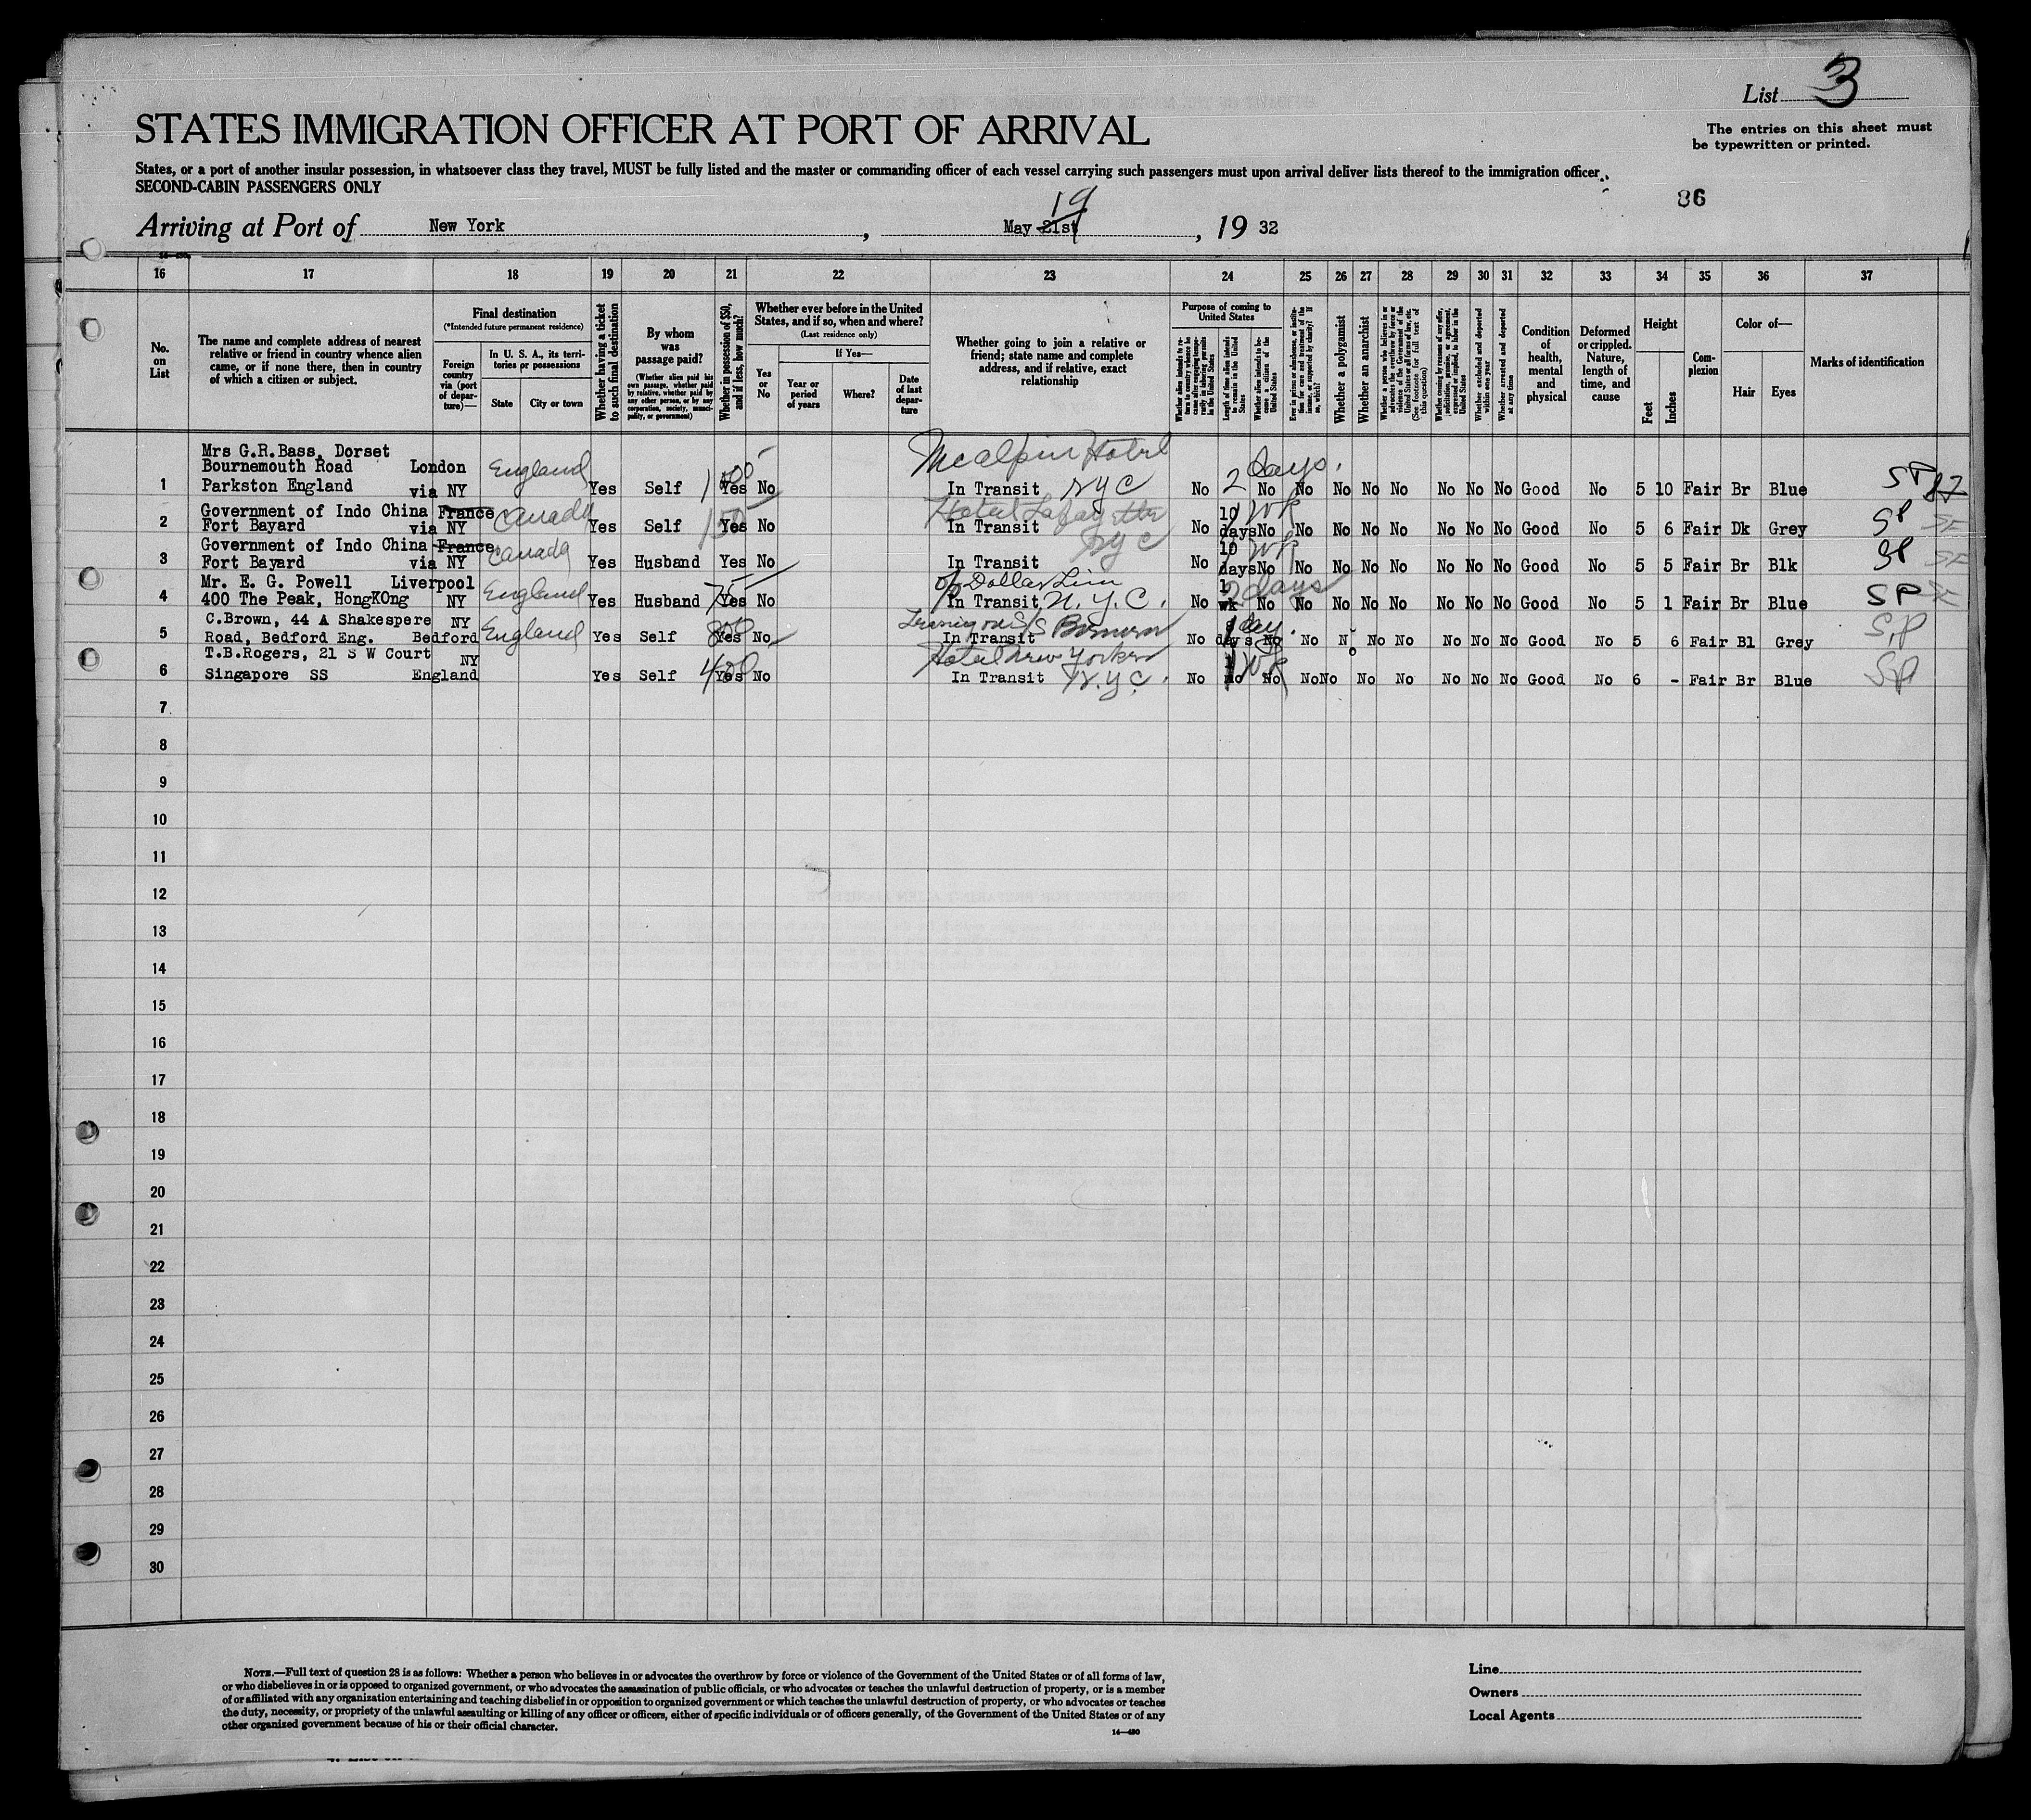 List 3
STATES IMMIGRATION OFFICER AT PORT OF ARRIVAL
The entries on this sheet must
be typewritten or printed.
States, or a port of another insular possession, in whatsoever class they travel, MUST be fully listed and the master or commanding officer of each vessel carrying such passengers must upon arrival deliver lists thereof to the immigration officer.
SECOND-CABIN PASSENGERS ONLY
86
Arriving at Port of New York, May 21st 19, 19 32
16 17 18 19 20 21 22 23 24 25 26 27 28 29 30 31 32 33 34 35 36 37
No. on List
The name and complete address of nearest relative or friend in country whence alien came, or if none there, then in country of which a citizen or subject.
Final destination
(*Intended future permanent residence)
Foreign country via (port of departure)—
In U. S. A., its territories or possessions
State
City or town
Whether having a ticket to such final destination
By whom was passage paid?
(Whether alien paid his own passage, whether paid by relative, whether paid by any other person, or by any corporation, society, municipality, or government)
Whether in possession of $50, and if less, how much?
Whether ever before in the United States, and if so, when and where?
(Last residence only)
Yes or No
If Yes—
Year or period of years
Where?
Date of last departure
Whether going to join a relative or friend; state name and complete address, and if relative, exact relationship
Purpose of coming to United States
Length of time alien intends to remain in the United States
Whether alien intends to become a citizen of the United States
Whether a polygamist
Whether an anarchist
(See footnote for full text of this question)
Whether excluded and deported within one year
Whether arrested and deported at any time
Condition of health, mental and physical
Deformed or crippled. Nature, length of time, and cause
Height
Feet
Inches
Complexion
Color of—
Hair
Eyes
Marks of identification
Mrs G.R.Bass, Dorset McAlpin Hotel
Bournemouth Road London England days.
1 Parkston England via NY Yes Self Yes No In Transit NYC No 2 No No No No No No No No Good No 5 10 Fair Br Blue SP
Government of Indo China France Canada Hotel Lafayette 10 1 wk
2 Fort Bayard via NY Yes Self 150 Yes No In Transit No days No No No No No No No No Good No 5 6 Fair Dk Grey SP
Government of Indo China France Canada NYC 10 1 wk
3 Fort Bayard via NY Yes Husband Yes No In Transit No days No No No No No No No No Good No 5 5 Fair Br Blk SP
Mr. E. G. Powell Liverpool England Dollar Line 1 2 days
4 400 The Peak, HongKOng NY Yes Husband 75 Yes No In Transit N.Y.C. No wk No No No No No No No No Good No 5 1 Fair Br Blue SP
C.Brown, 44 A Shakespere NY S/S 1 day.
5 Road, Bedford Eng. Bedford England Yes Self 800 Yes No In Transit No days No No No No No No No No Good No 5 6 Fair Bl Grey SP
T.B.Rogers, 21 S W Court NY Hotel New Yorker 1 wk
6 Singapore SS England Yes Self 400 Yes No In Transit N.Y.C. No No No No No No No No No Good No 6 - Fair Br Blue SP
7
8
9
10
11
12
13
14
15
16
17
18
19
20
21
22
23
24
25
26
27
28
29
30
NOTE.—Full text of question 28 is as follows: Whether a person who believes in or advocates the overthrow by force or violence of the Government of the United States or of all forms of law,
or who disbelieves in or is opposed to organized government, or who advocates the assassination of public officials, or who advocates or teaches the unlawful destruction of property, or is a member
of or affiliated with any organization entertaining and teaching disbelief in or opposition to organized government or which teaches the unlawful destruction of property, or who advocates or teaches
the duty, necessity, or propriety of the unlawful assaulting or killing of any officer or officers, either of specific individuals or of officers generally, of the Government of the United States or of any
other organized government because of his or their official character.
14—480
Line
Owners
Local Agents